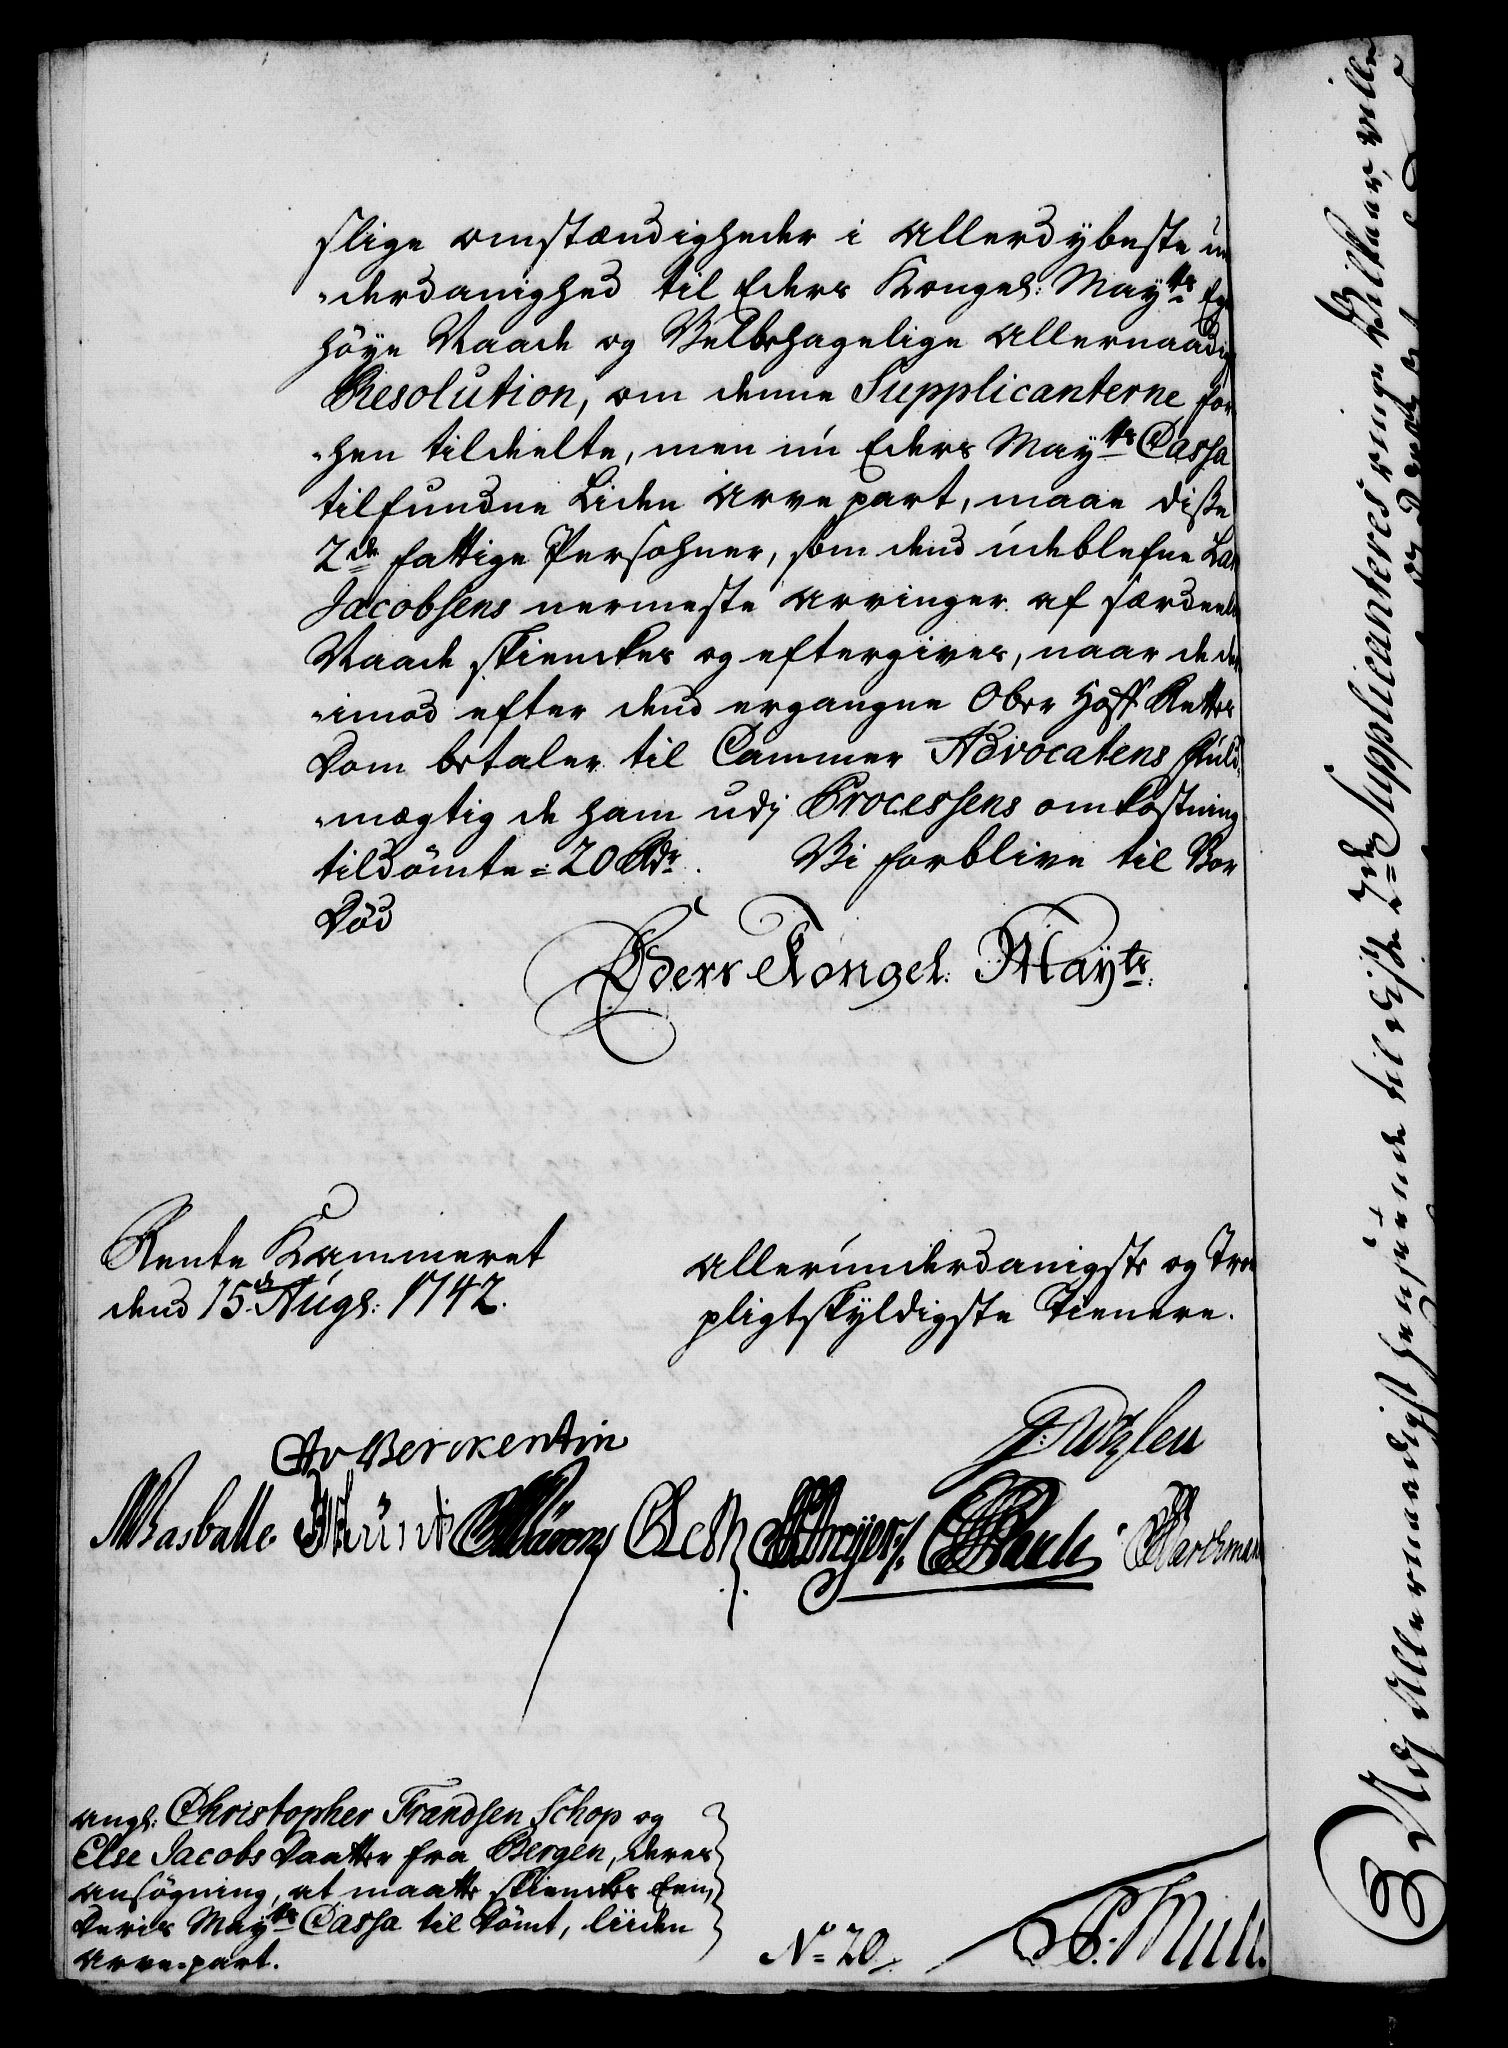 slige omstændigheder i Allerdybeste un
-derdanighed til Eders Kongel: May:ts Eg
höye Naade og Velbehagelige Allernaadig
Resolution, om denne Supplicanterne for
-hen tildeelte, men nu Eders May:ts Cassa
tilfundne Liden Arvepart, maae disse
2de fattige Persohner, som dend udeblefne Lar
Jacobsens nermeste Arvinger af særdeele
Naade skienckes og eftergives, naar de der
-imod efter dend ergangne Ober Hoff Rettes
Dom betaler til Cammer Advocatens Fuld-
-mægtig de ham udj Processens omkostning
tildömte 20 Rdr. Vi forblive til Vor
Död
Eders Kongel. Mayts.
Rente Kammeret
dend 15de Augs: 1742.
Allerunderdanigste og Troe
pligtskyldigste Tienere.
Berckentin
Basballe
Bartzman
angl: Christopher Frandsen Schop og
Else Jacobs Daatter fra Bergen, deres
ansögning, at maatte skienckes Een,
Deris May:ts Cassa til Dömt, liiden
Arve-part.
No 20
Udj Allernaadigst henseende til disse 2de Supplicanteres ringe Vilkaar, ville